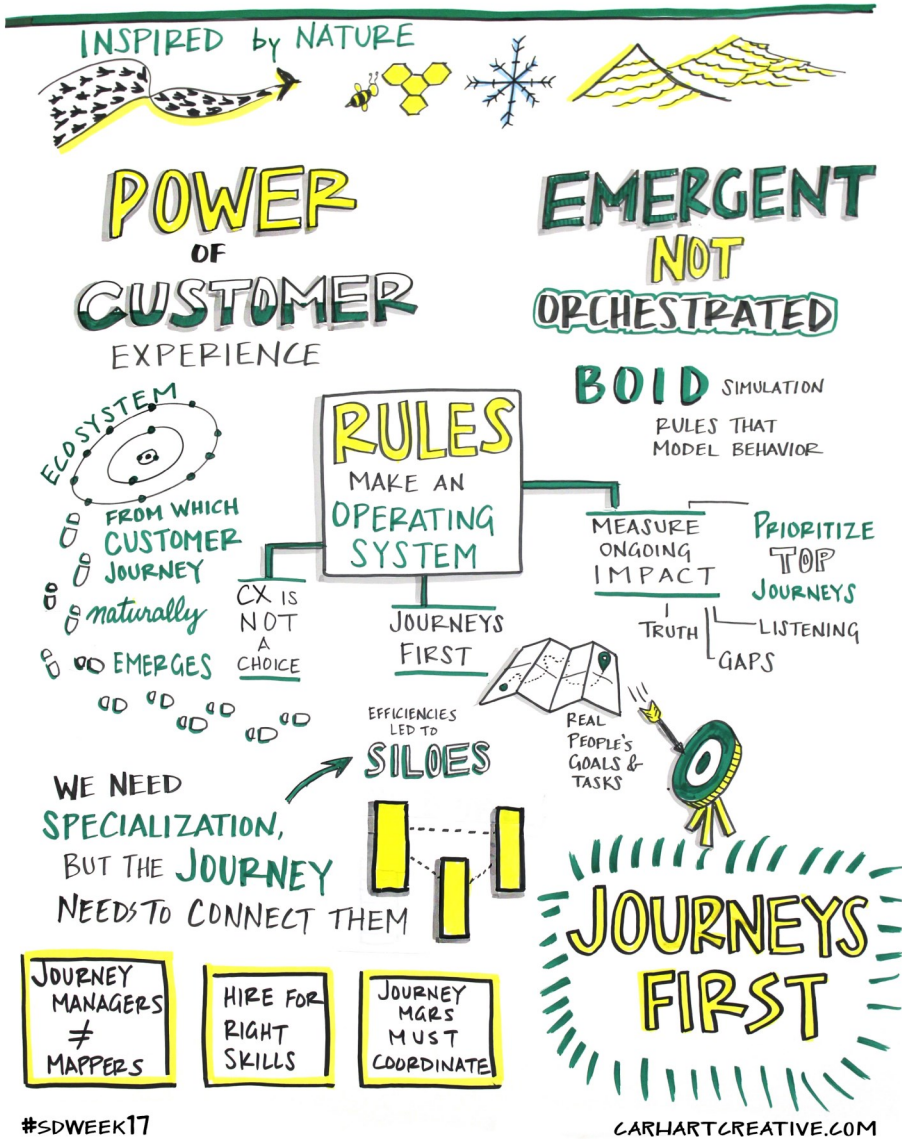 INSPIRED by NATURE
POWER
OF
CUSTOMER
EXPERIENCE
EMERGENT
NOT
ORCHESTRATED
BOID SIMULATION
RULES THAT
MODEL BEHAVIOR
ECOSYSTEM
FROM WHICH
CUSTOMER
JOURNEY
naturally
EMERGES
RULES
MAKE AN
OPERATING
SYSTEM
CX IS
NOT
A
CHOICE
JOURNEYS
FIRST
MEASURE
ONGOING
IMPACT
PRIORITIZE
TOP
JOURNEYS
TRUTH
LISTENING
GAPS
REAL
PEOPLE'S
GOALS &
TASKS
EFFICIENCIES
LED TO
SILOES
WE NEED
SPECIALIZATION,
BUT THE JOURNEY
NEEDS TO CONNECT THEM
JOURNEYS
FIRST
JOURNEY
MANAGERS
≠
MAPPERS
HIRE FOR
RIGHT
SKILLS
JOURNEY
MGRS
MUST
COORDINATE
#SDWEEK17
CARHARTCREATIVE.COM